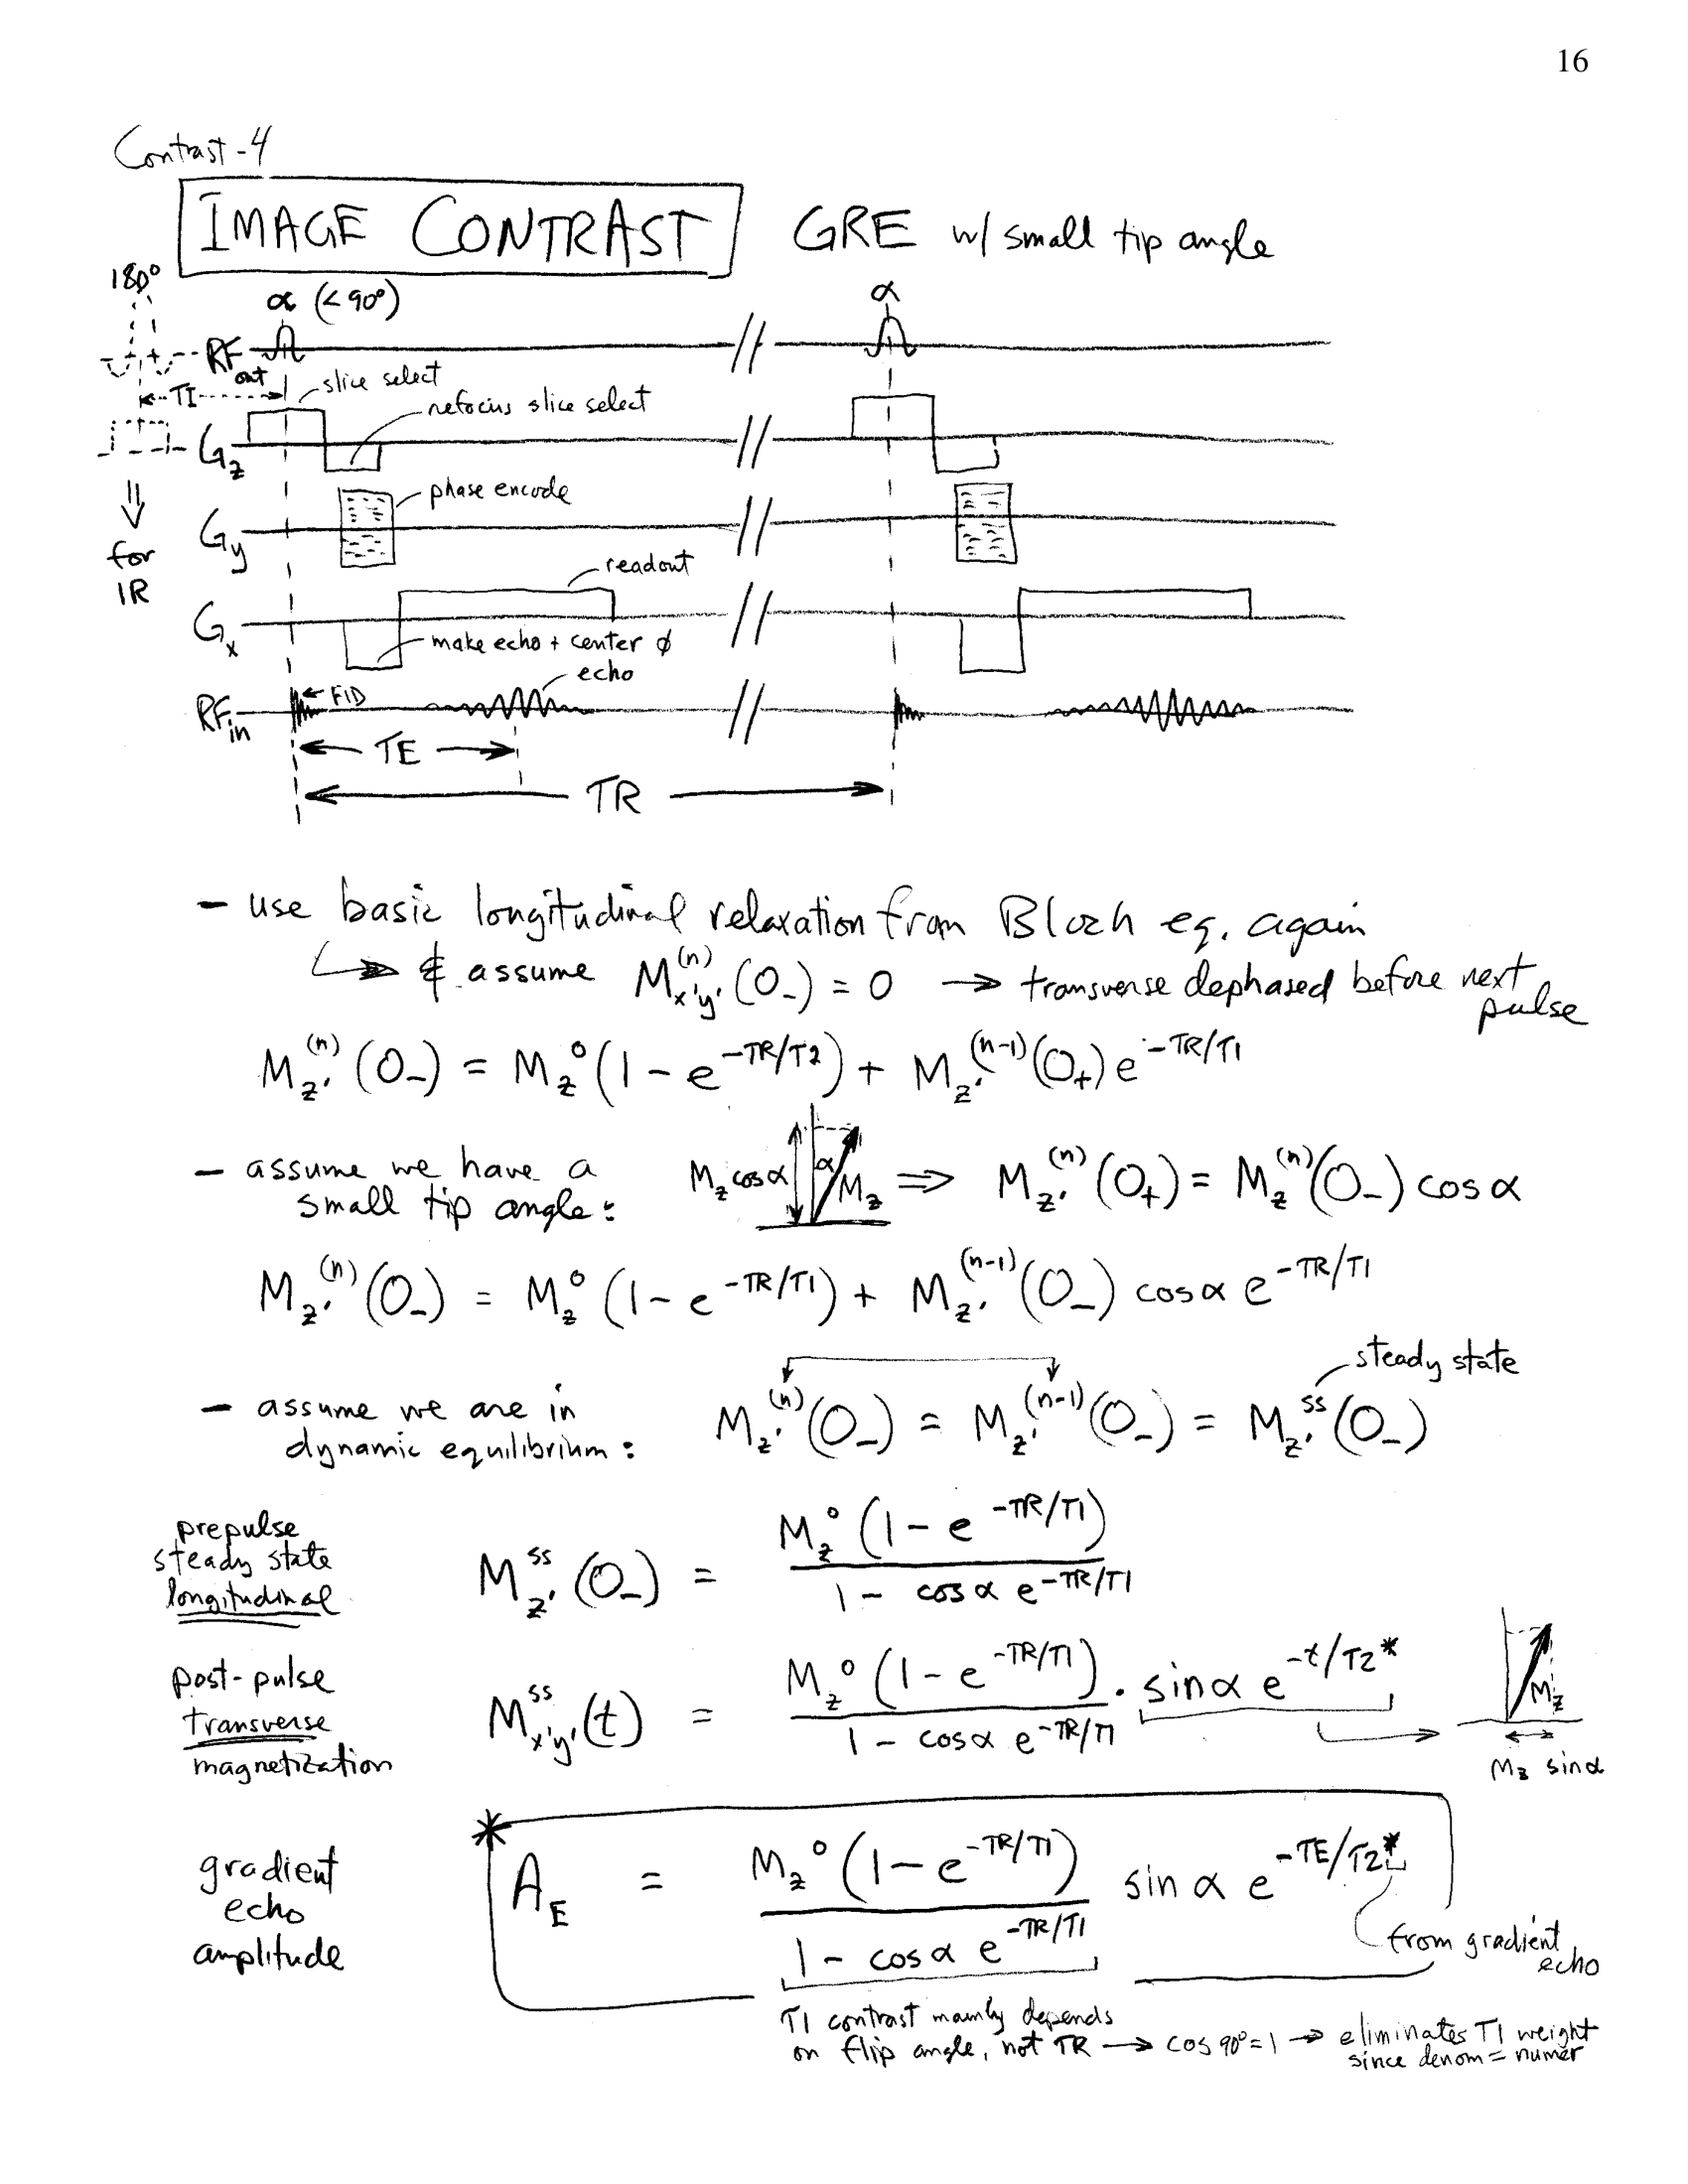 16
Contrast-4
IMAGE CONTRAST GRE w/ small tip angle
180° α (<90°) α
RF out
TI
slice select
refocus slice select
Gz
phase encode
⇓ for IR
Gy
readout
Gx
make echo + center ϕ
echo
RFin ← FID
← TE →
← TR →
– use basic longitudinal relaxation from Bloch eq. again
↳ & assume Mx'y'^(n)(0_) = 0 → transverse dephased before next pulse
Mz'^(n)(0_) = Mz^0(1 - e^-TR/T2) + Mz'^(n-1)(0+) e^-TR/T1
– assume we have a small tip angle: Mz cosα α Mz ⇒ Mz'^(n)(0+) = Mz^(n)(0_) cosα
Mz'^(n)(0_) = Mz^0 (1 - e^-TR/T1) + Mz'^(n-1)(0_) cosα e^-TR/T1
steady state
– assume we are in dynamic equilibrium: Mz'^(n)(0_) = Mz'^(n-1)(0_) = Mz'^ss(0_)
prepulse steady state longitudinal
Mz'^ss(0_) = Mz^0 (1 - e^-TR/T1) / 1 - cosα e^-TR/T1
post-pulse transverse magnetization
Mx'y'^ss(t) = Mz^0 (1 - e^-TR/T1) / 1 - cosα e^-TR/T1 · sinα e^-t/T2*
Mz
Mz sinα
gradient echo amplitude
* AE = Mz^0 (1 - e^-TR/T1) / 1 - cosα e^-TR/T1 sinα e^-TE/T2*
from gradient echo
T1 contrast mainly depends
on flip angle, not TR → cos 90°=1 → eliminates T1 weight
since denom = numer